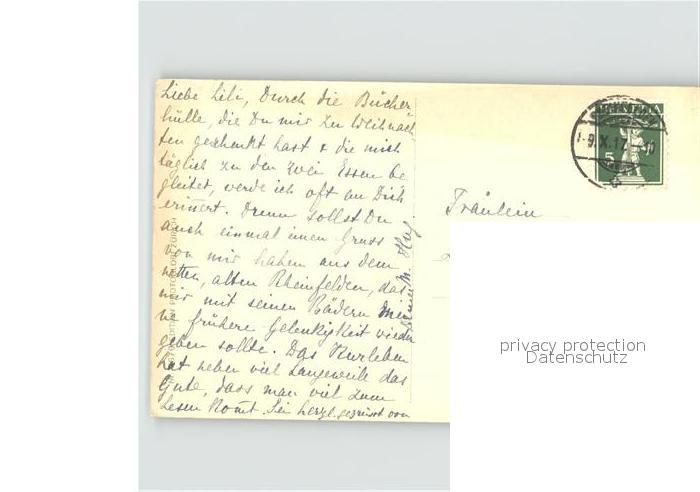 Liebe Lili, Durch die Bücher
hülle, die Du mir zu Weihnach
ten geschenkt hast & die mich
täglich zu den zwei Essen be
gleitet, werde ich oft an Dich
erinnert. Drum sollst Du
auch einmal einen Gruss
von mir haben aus dem
netten, alten Rheinfelden, das
mir mit seinen Bädern meine
frühere Gelenkigkeit wieder
geben sollte. Das Kurleben
hat neben viel Langeweile das
Gute, dass man viel zum
Lesen kommt. Sei herzl. gegrüsst von
M. Hug
Fräulein
HELVETIA
5
privacy protection
Datenschutz